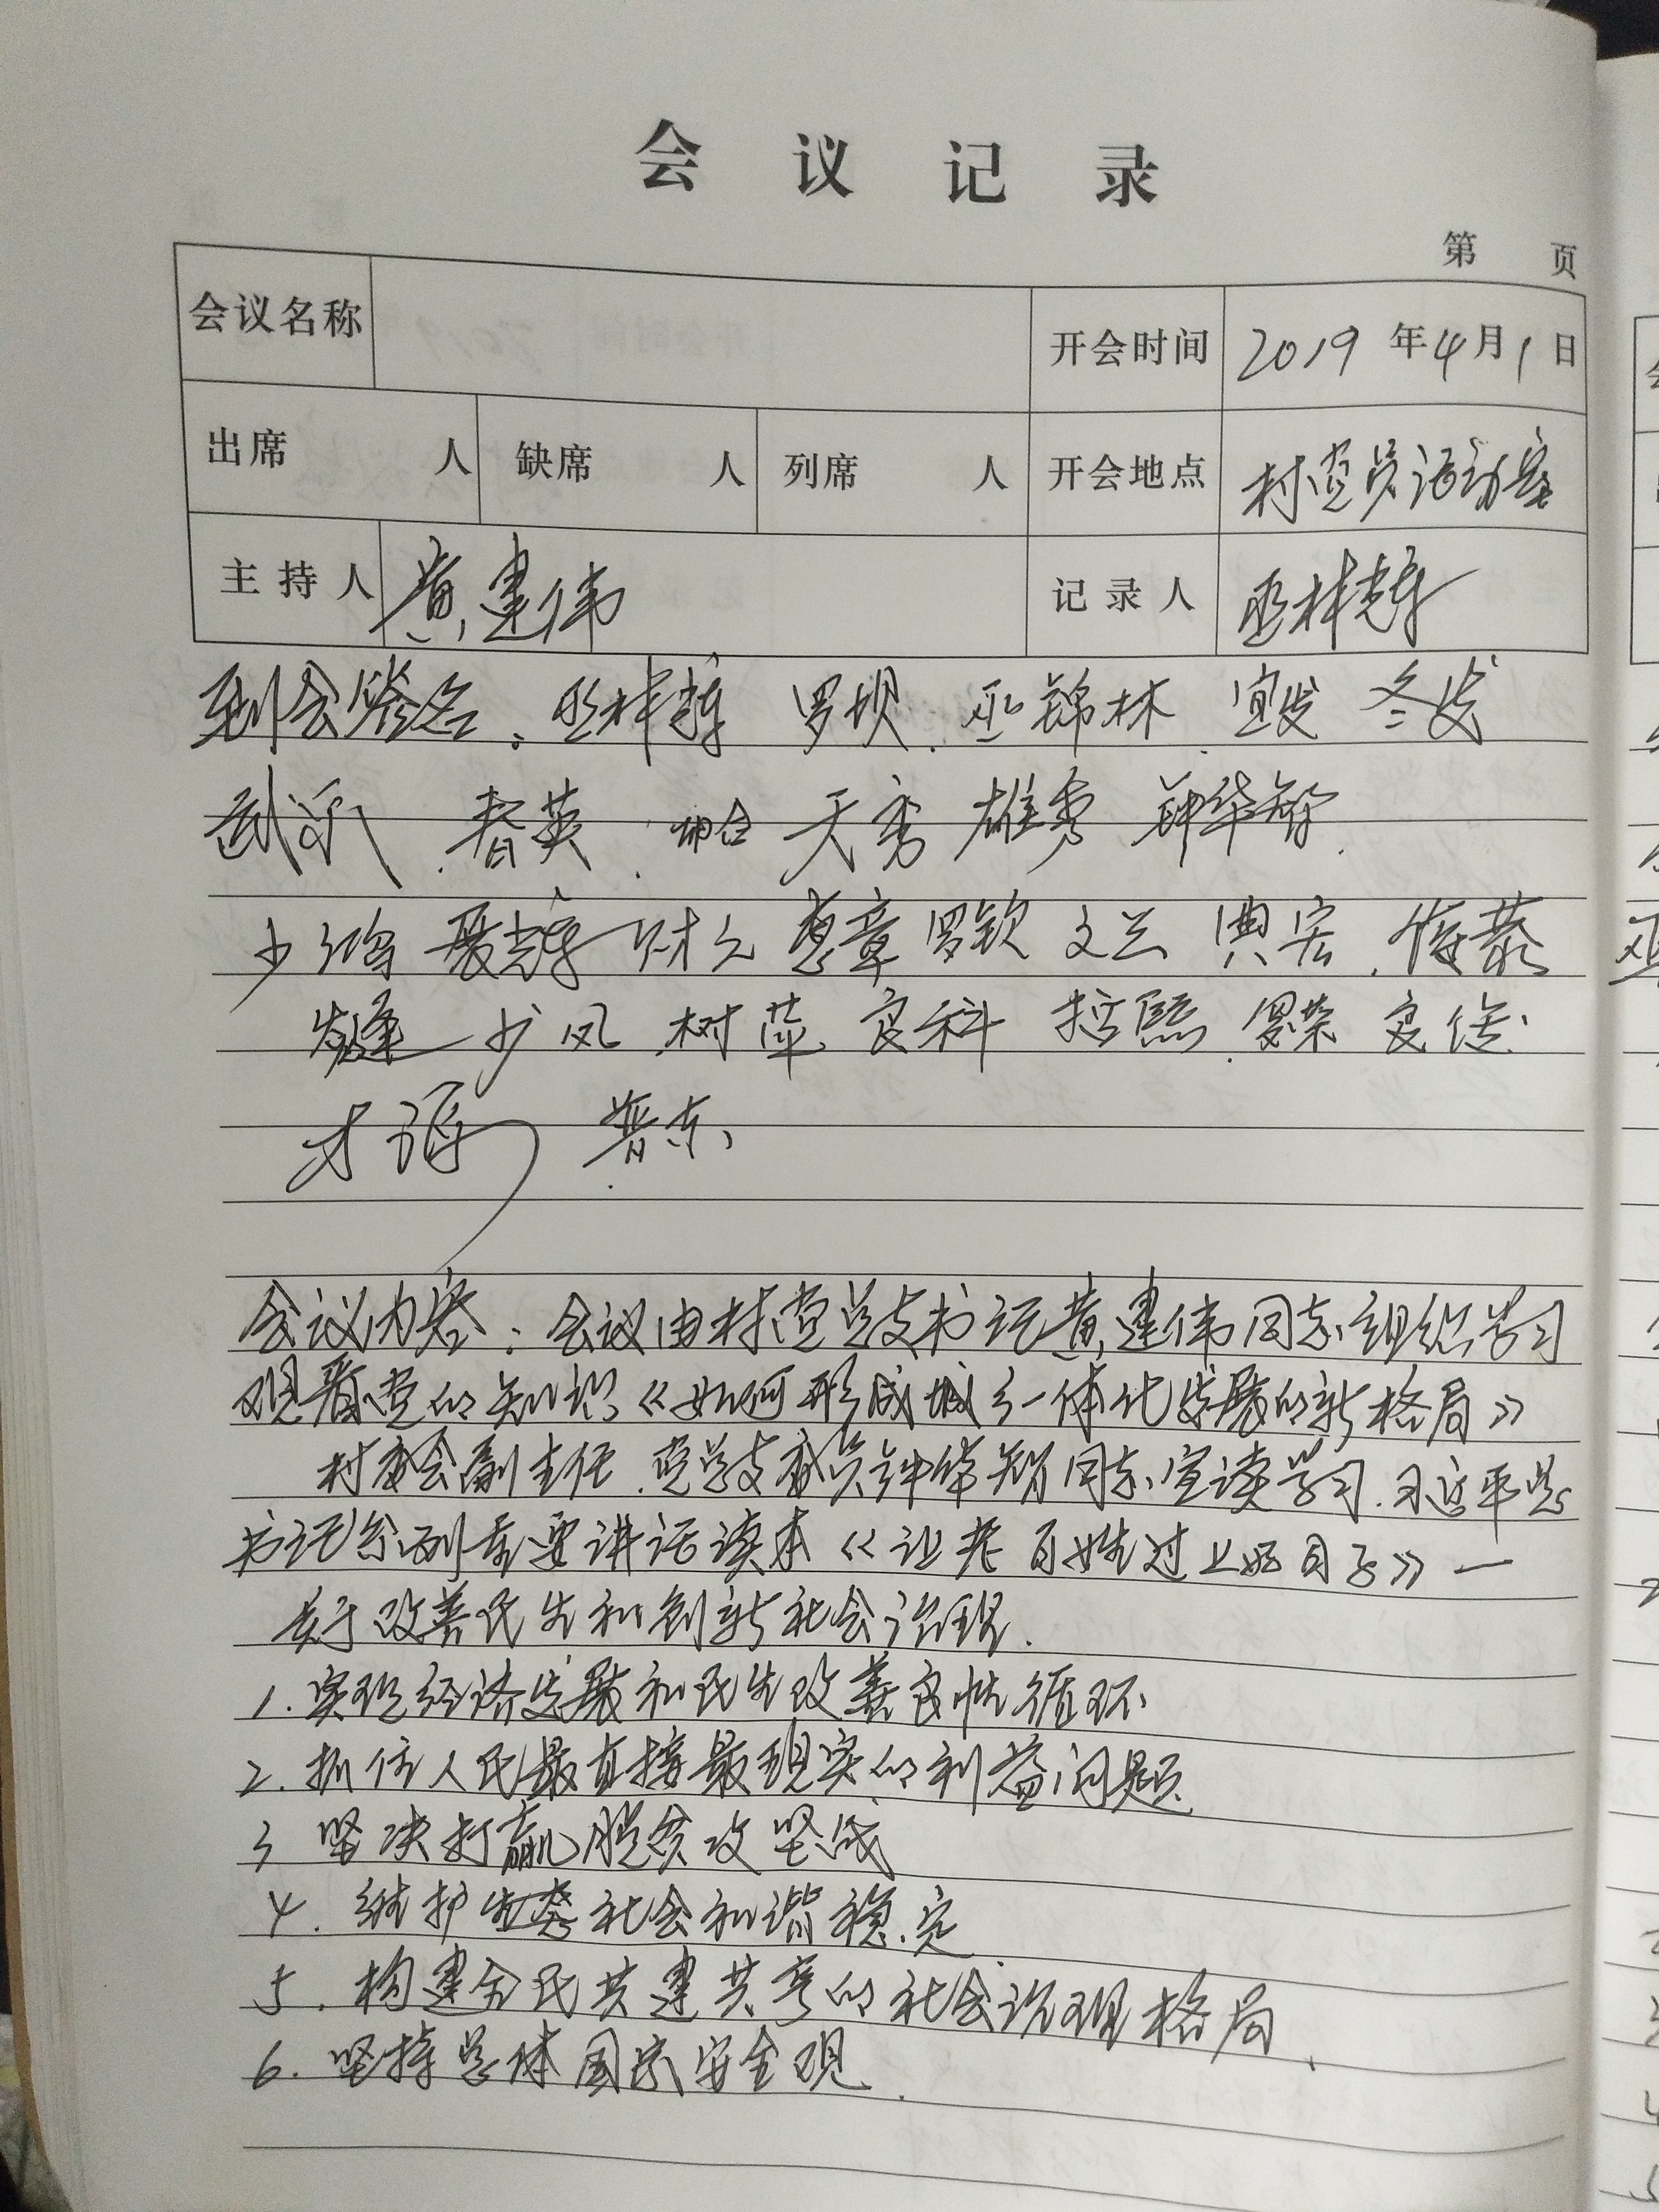 会议记录
第 页
会议名称 开会时间 2019年4月1日
出席 人 缺席 人 列席 人 开会地点 村党员活动室
主持人 黄建伟 记录人 巫林辉
到会签名: 巫林辉 罗坝. 巫锦林. 宜发 冬发
春英. 天秀 雄秀 钟华智.
少鸿 聂辉 财元 惠章 罗钦 文兰 典宏.
少风. 树萍 良科 罗荣 良
晋东
会议内容:会议由村党总支书记黄建伟同志组织学习
观看党的知识《如何形成城乡一体化发展的新格局》
村委会副主任.党总支委员钟华智同志宣读学习.习近平总
书记系列重要讲话读本《让老百姓过上好日子》一
关于改善民生和创新社会治理.
1.实现经济发展和民生改善良性循环
2.抓住人民最直接最现实的利益问题
3 坚决打赢脱贫攻坚战
4.维护生态社会和谐稳定
5.构建全民共建共享的社会治理格局.
6.坚持总体国家安全观.